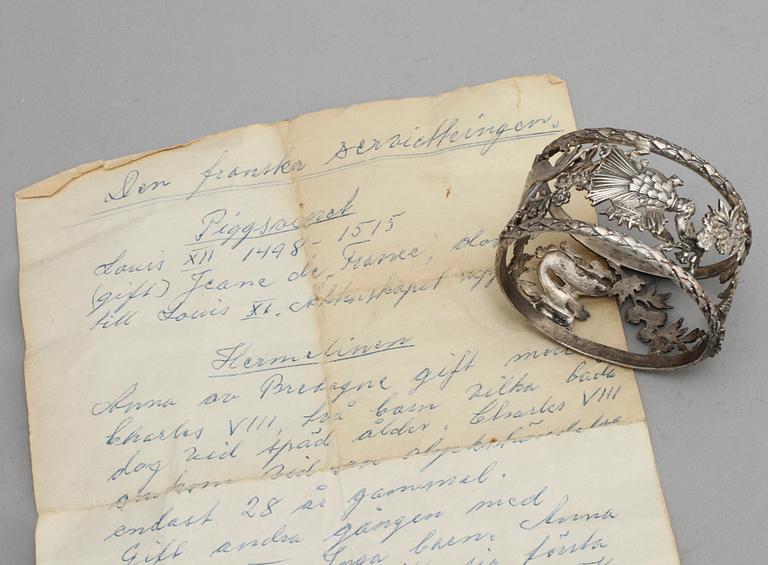 Den franska serviettringen.
Piggsvinet
Louis XII 1498-1515
(gift) Jeane de France, dot
till Louis XI. Äktenskapet upp
Hermelinen
Anna av Bretagne gift med
Charles VIII, två barn vilka båda
dog vid späd ålder. Charles VIII
omkom vid en olyckshändelse
endast 28 år gammal.
Gift andra gången med
Inga barn. Anna
sin första